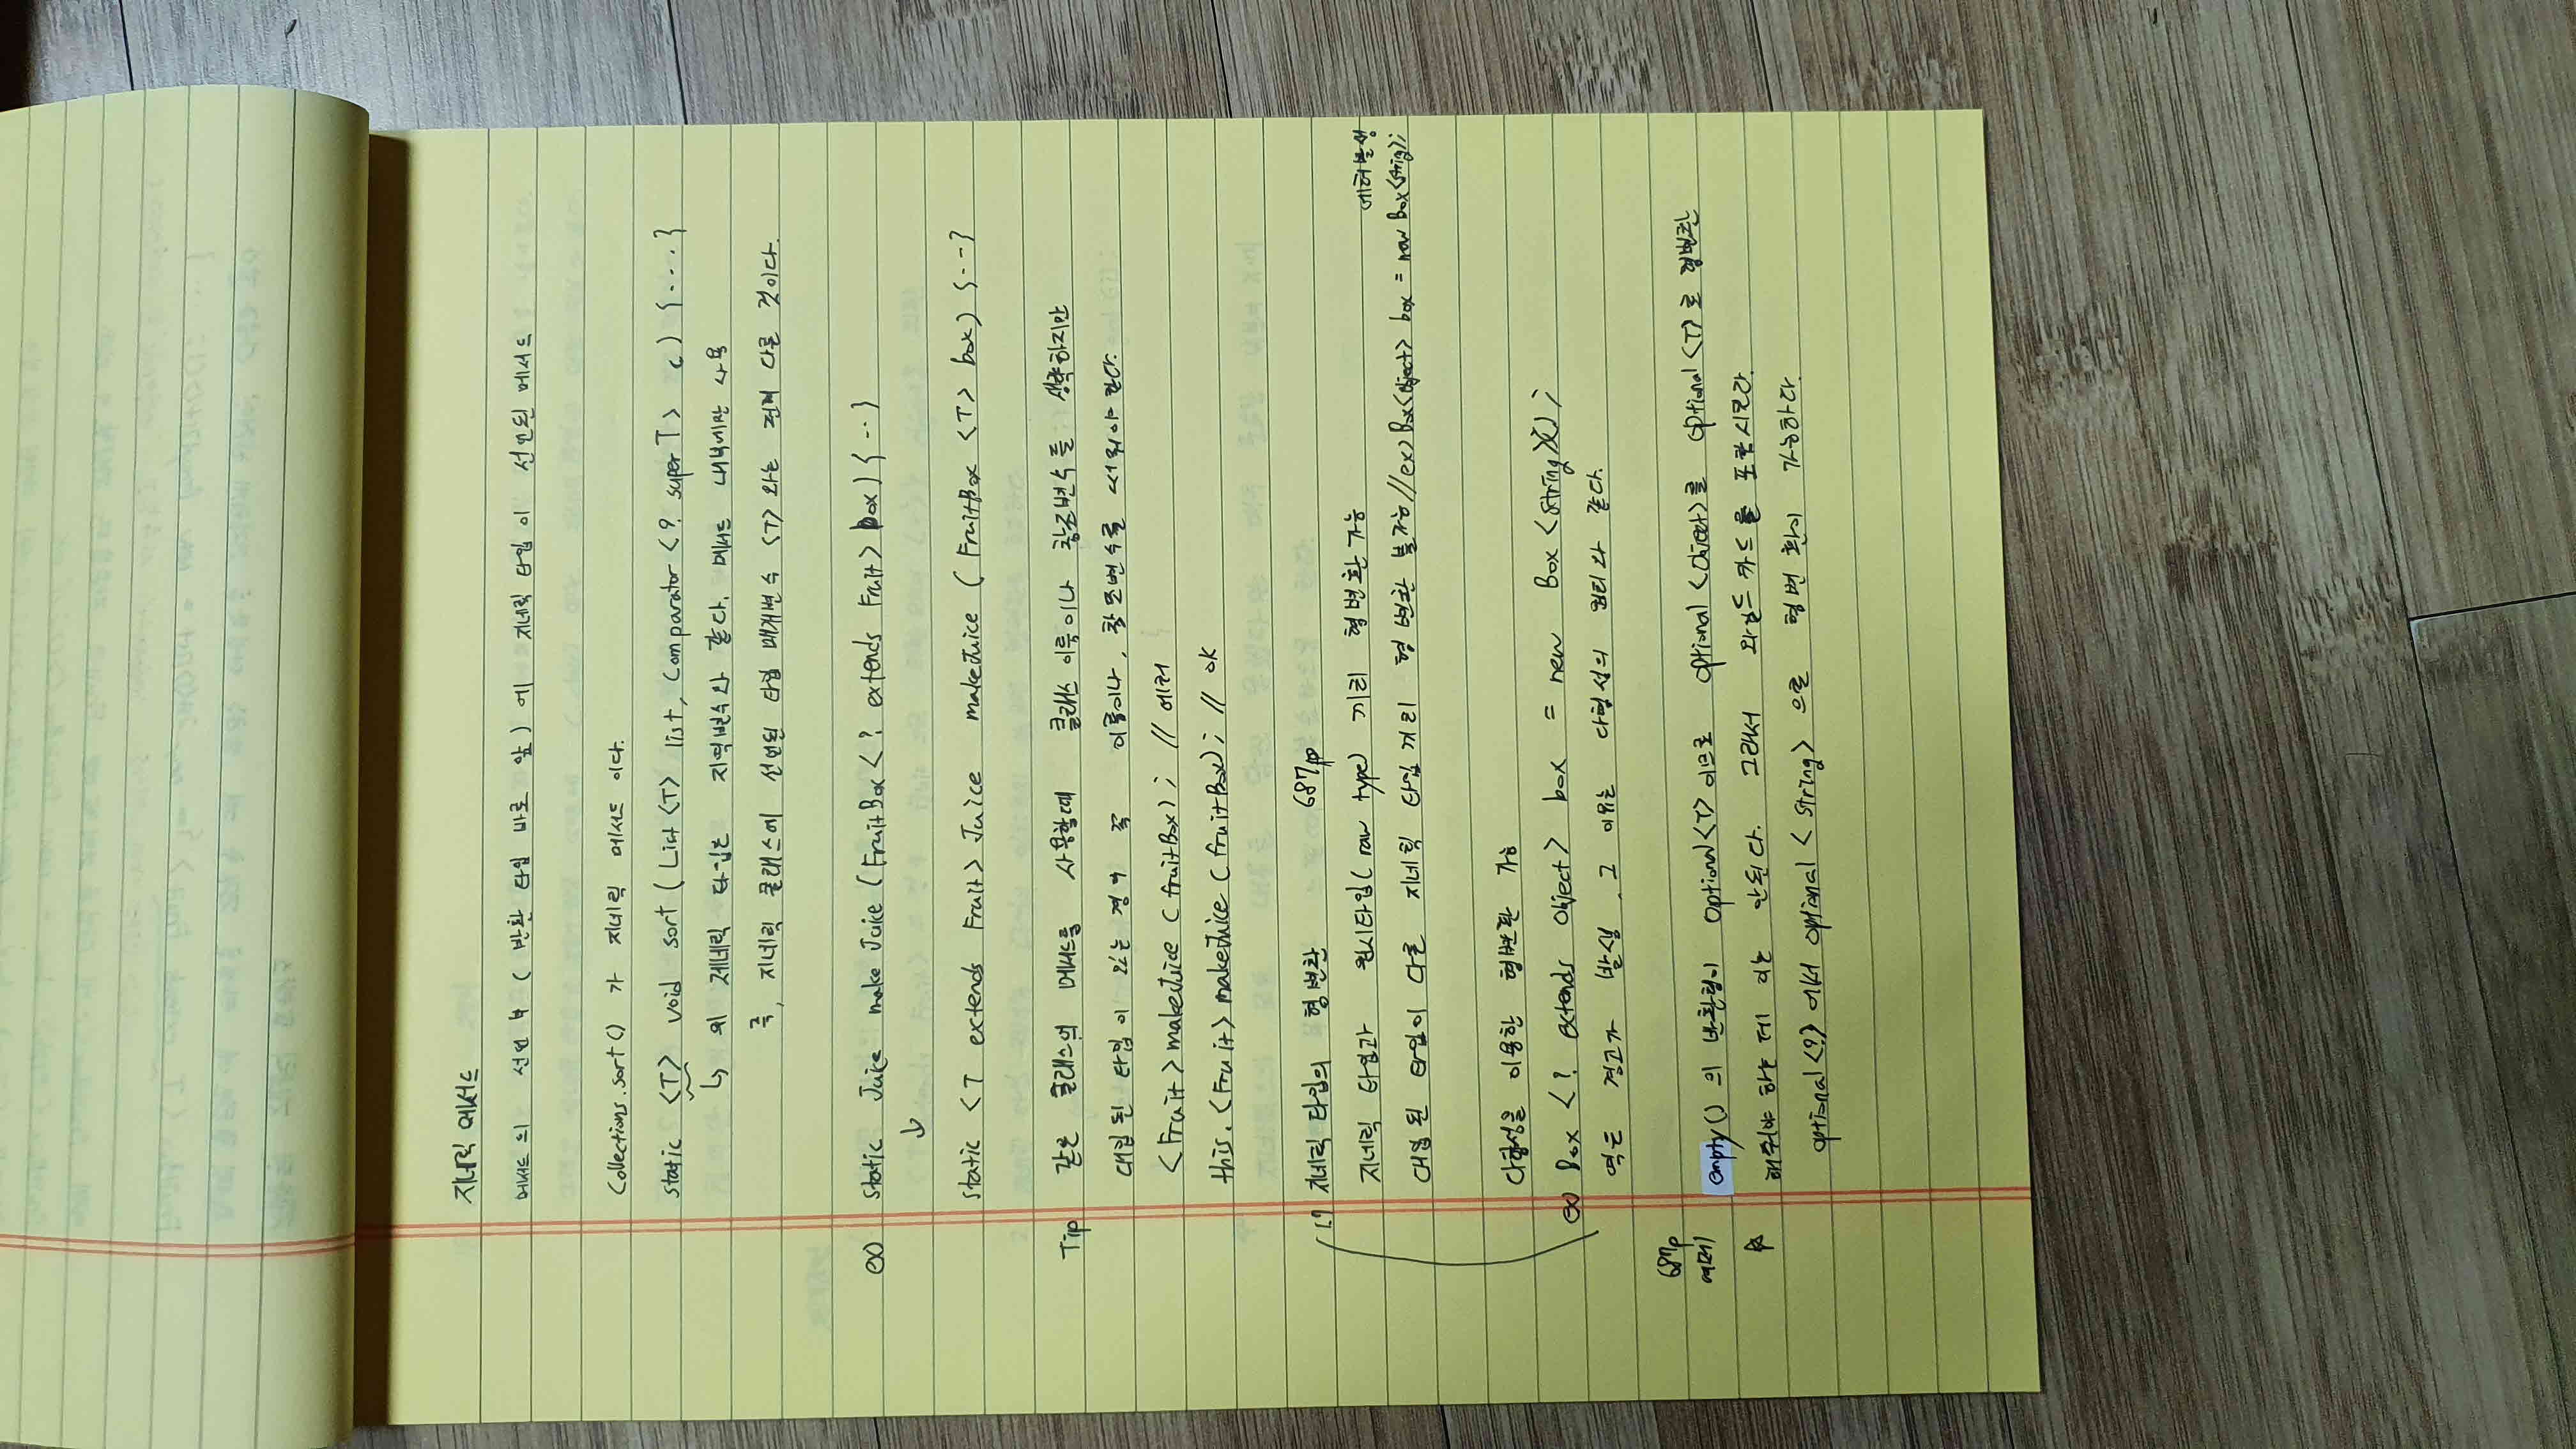 지네릭 메서드
메서드의 선언부 (반환 타입 바로 앞)에 지네릭 타입이 선언된 메서드
Collections.sort() 가 지네릭 메서드 이다.
static <T> void sort (List <T> list, Comparator <? super T> c) {....}
↳ 의 제네릭 타입은 지역변수와 같다. 메서드 내부에만 사용
즉, 지네릭 클래스에 선언된 타입 매개변수 <T> 와는 전혀 다른 것이다.
ex) static Juice makeJuice (FruitBox <? extends Fruit> box) {...}
↓
static <T extends Fruit> Juice makeJuice (FruitBox <T> box) {...}
Tip 같은 클래스의 메서드를 사용할때 클래스 이름이나 참조변수를 생략하지만
대입된 타입이 있는 경우 꼭 이름이나, 참조변수를 써줘야 한다.
<Fruit> makeJuice (fruitBox); // 에러
this.<Fruit> makeJuice (fruitBox); // ok
1.7 지네릭 타입의 형변환 687p
지네릭 타입과 원시타입(raw type) 끼리 형변환 가능
에러발생
대입된 타입이 다른 지네릭 타입 끼리 형변환 불가능 //ex) Box<Object> box = new Box<Strig>;
다형성을 이용한 형변환 가능
ex) Box <? extends Object> box = new Box <String>();
역은 경고가 발생. 그 이유는 다형성의 원리와 같다.
687p
예제 empty() 의 반환형이 Optional<T> 이므로 optional <Object>를 optional <T>로 형변환
☆ 해줘야 하는데 이는 안된다. 그래서 와일드 카드를 포함시킨다.
optional <?> 에서 optional <String> 으로 형변환이 가능하다.